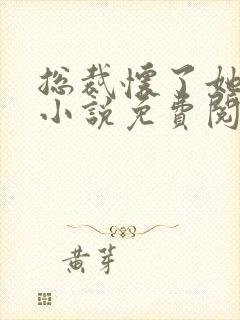 总裁怀了她
小说免费阅
黄芽